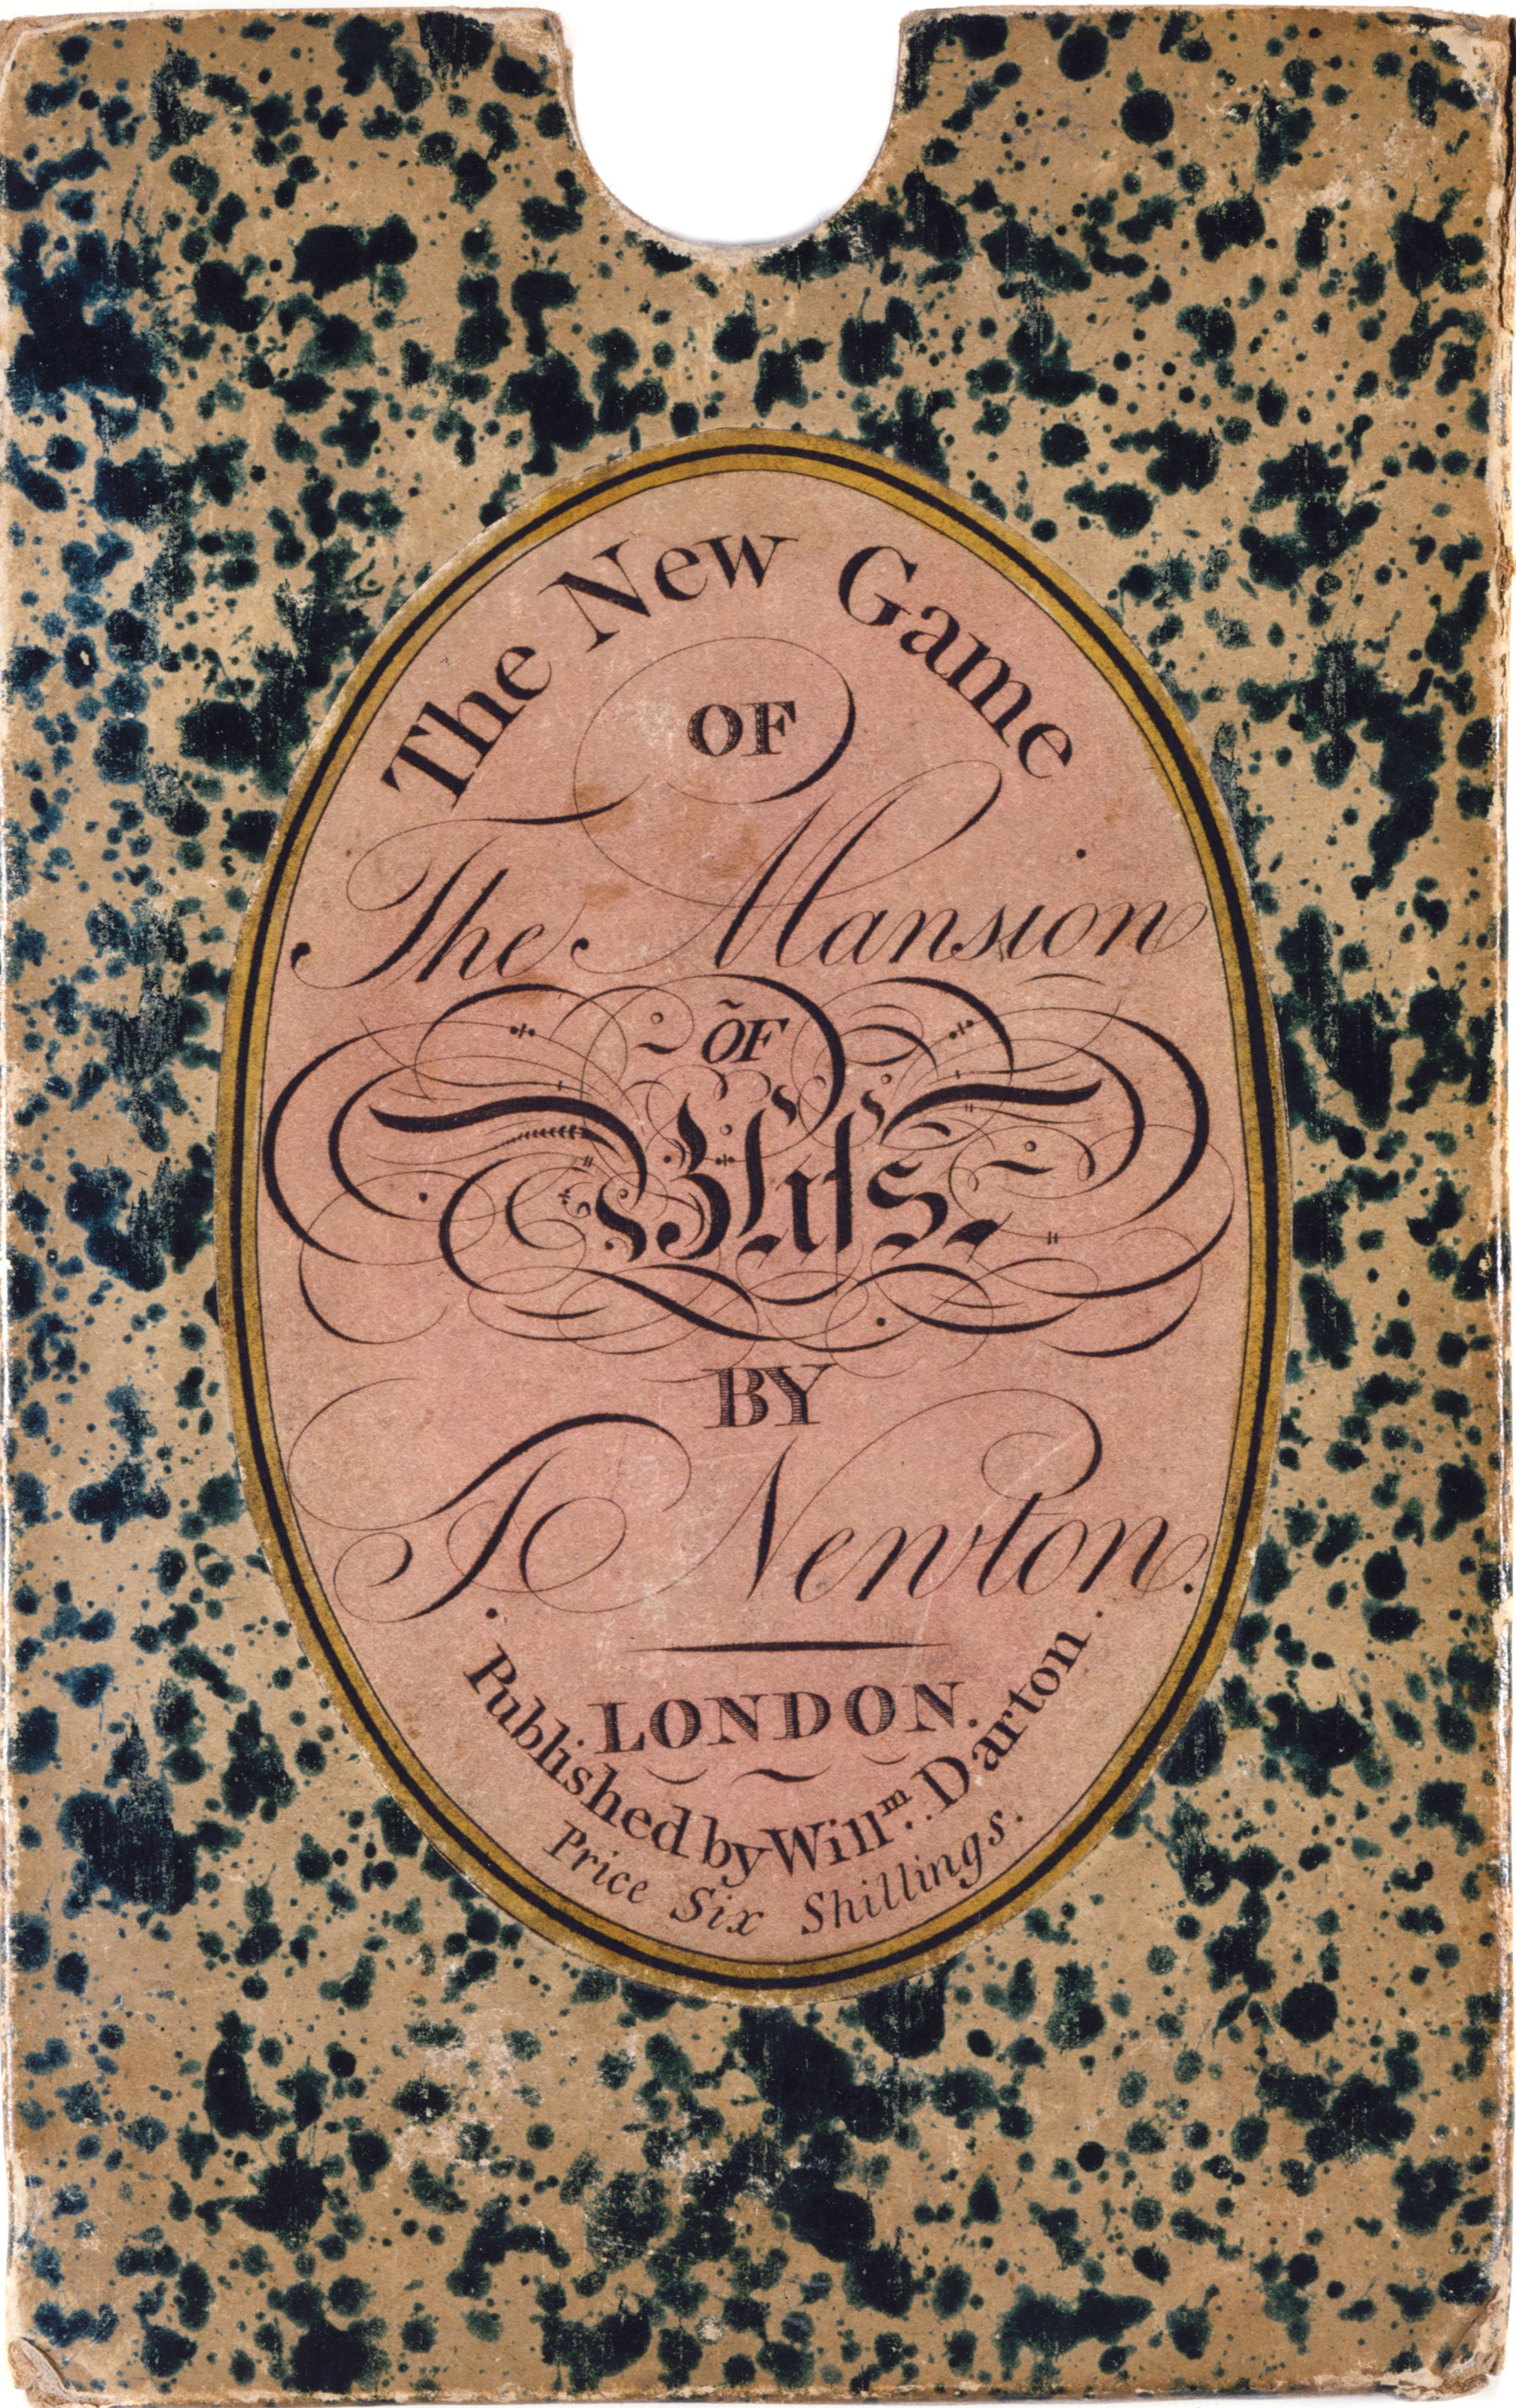 The New Game
OF
The Mansion
OF
Bliſs.
BY
T Newton.
LONDON.
Published by Will^m. Darton.
Price Six Shillings.